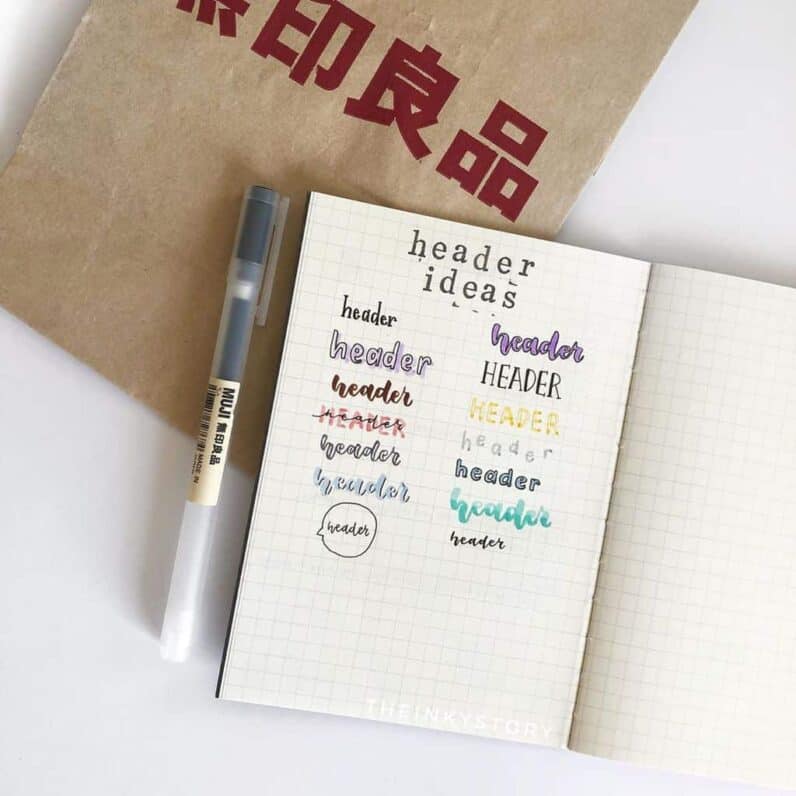 無印良品
header
ideas
header
header
header
HEADER
header
header
header
header
header
HEADER
HEADER
header
header
header
header
MUJI 無印良品
MADE IN
THEINKYSTORY